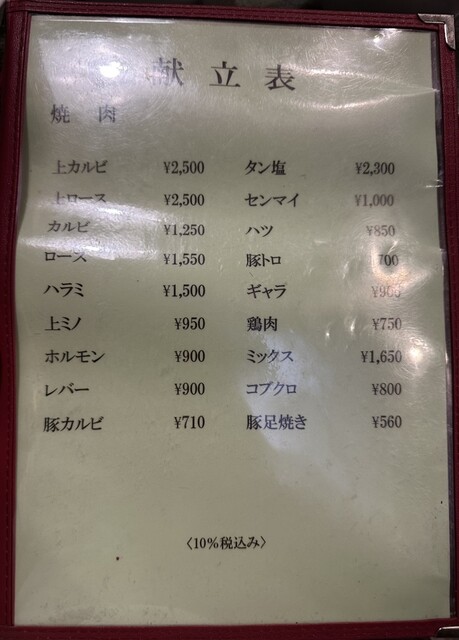 献立表
焼肉
上カルビ ¥2,500
上ロース ¥2,500
カルビ ¥1,250
ロース ¥1,550
ハラミ ¥1,500
上ミノ ¥950
ホルモン ¥900
レバー ¥900
豚カルビ ¥710
タン塩 ¥2,300
センマイ ¥1,000
ハツ ¥850
豚トロ
ギャラ
鶏肉 ¥750
ミックス ¥1,650
コブクロ ¥800
豚足焼き ¥560
〈10%税込み〉